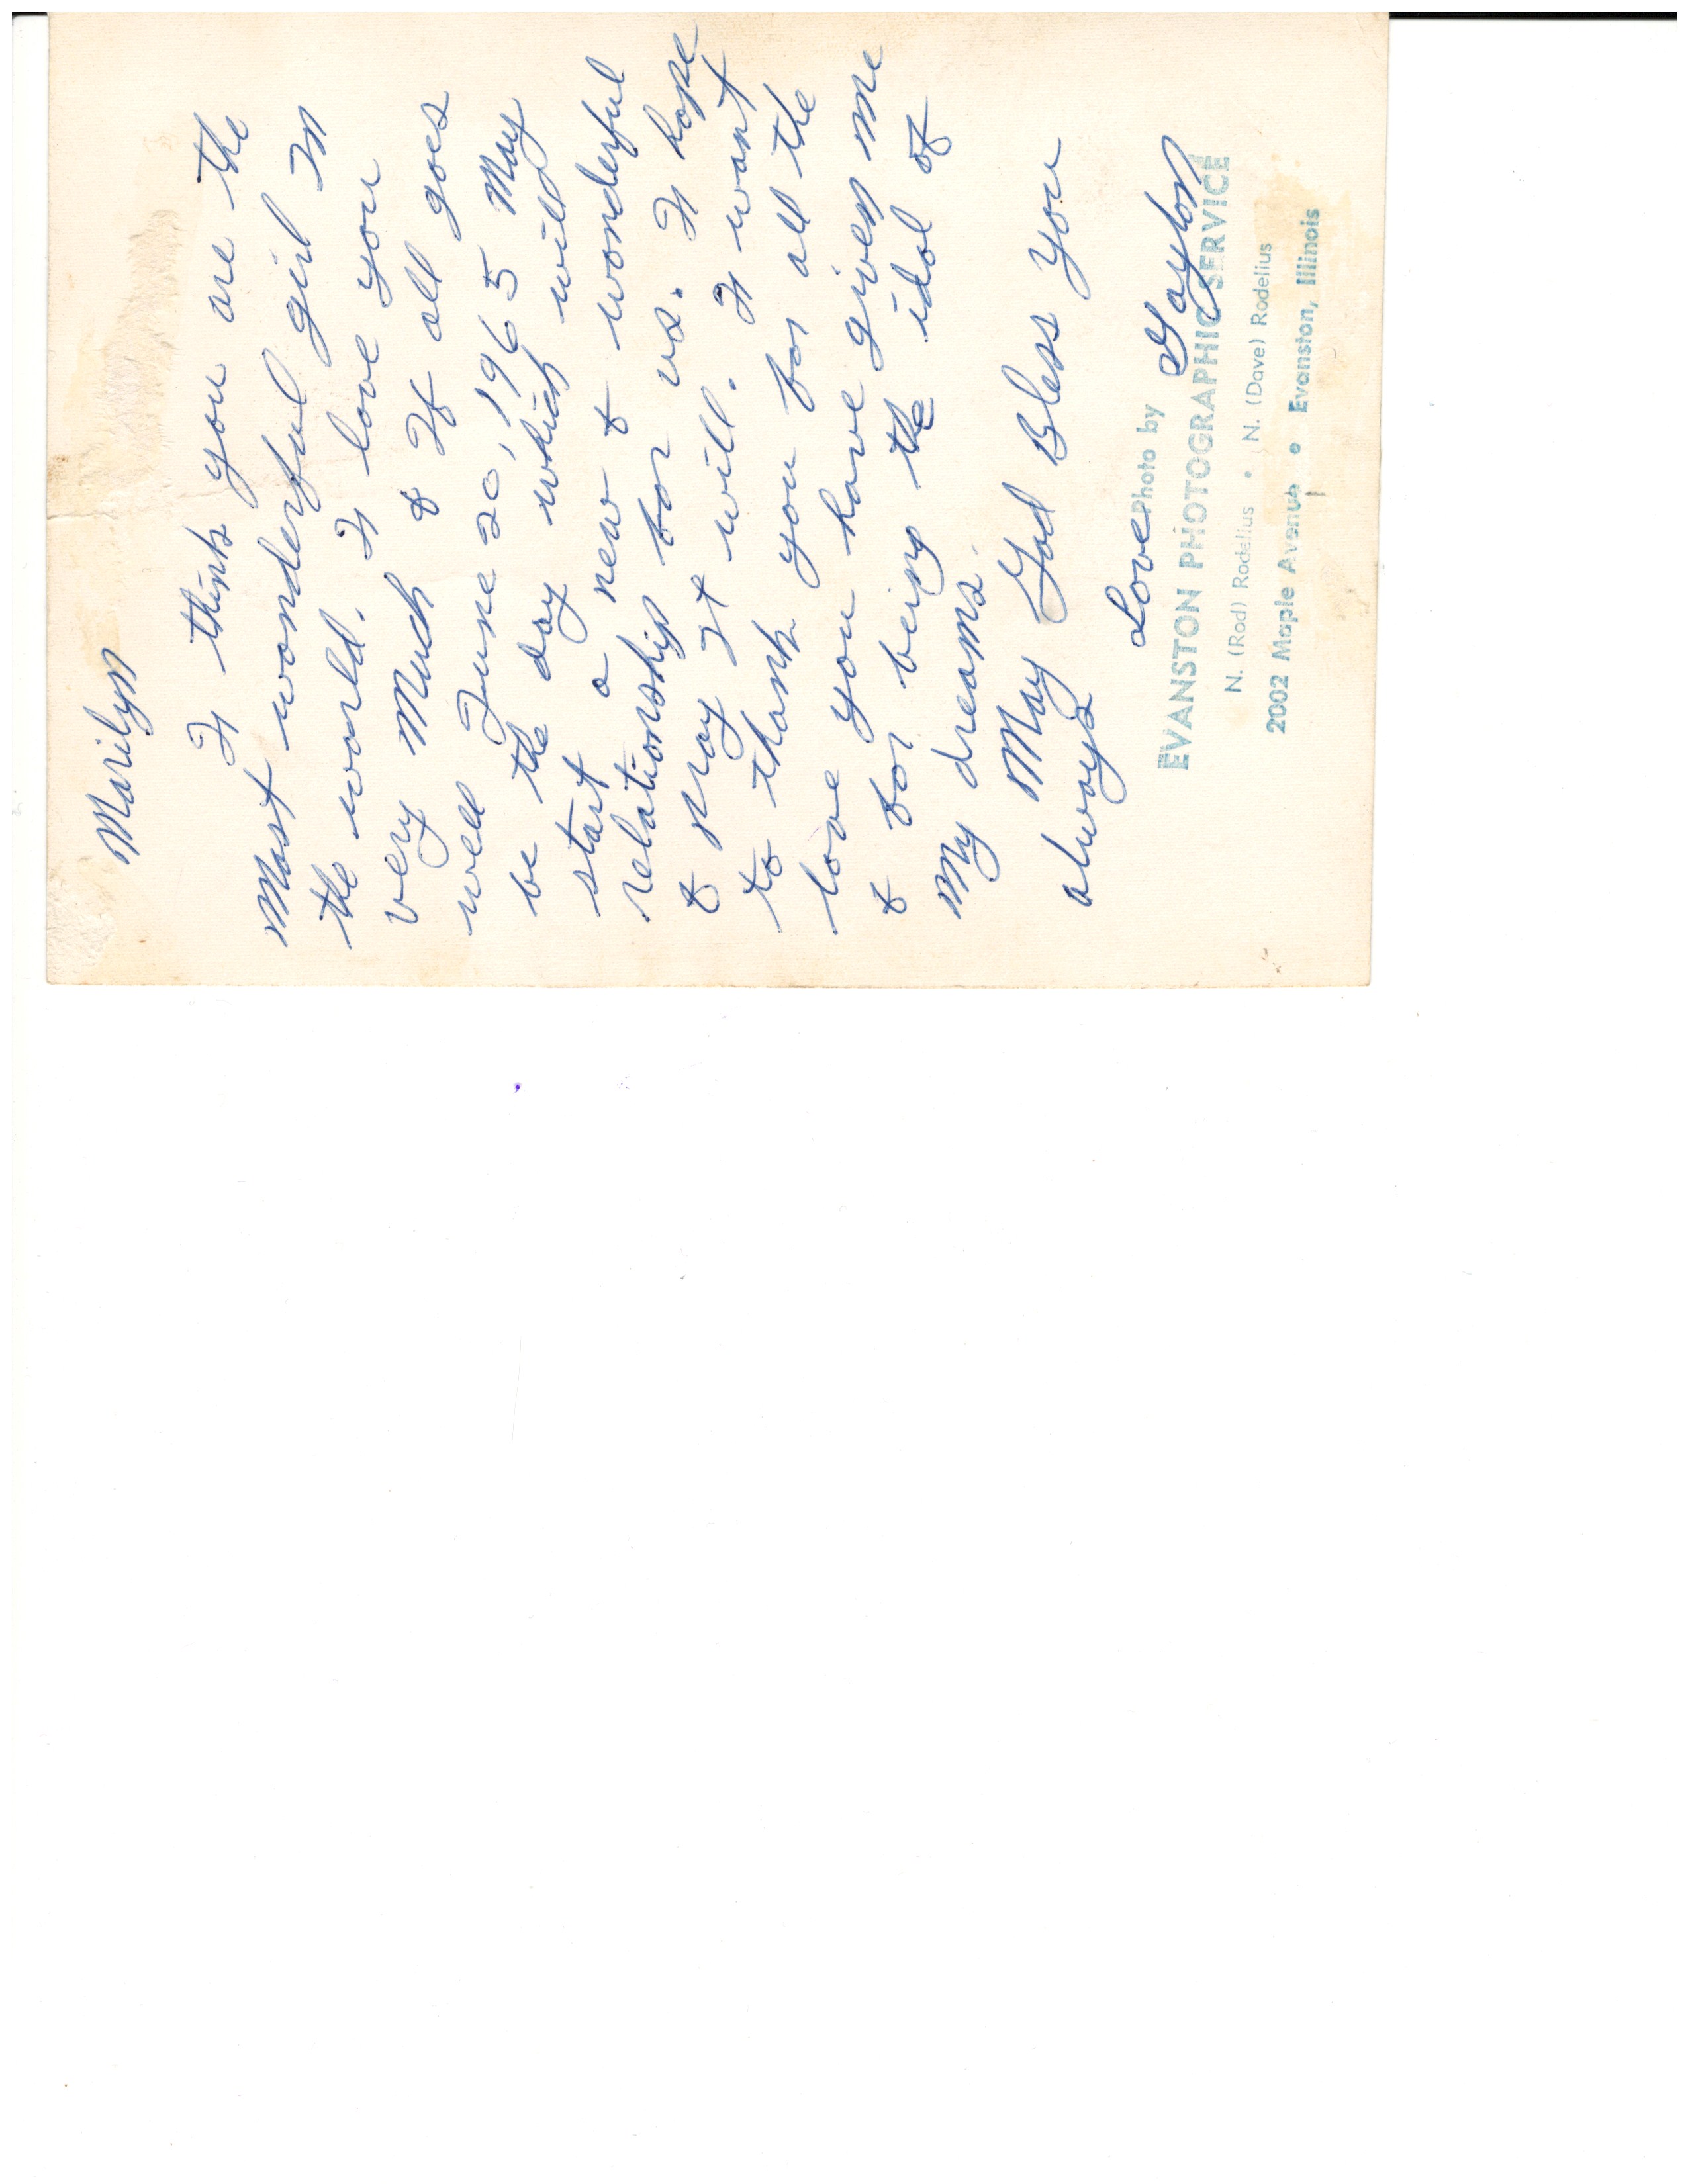 Marilyn
I think you are the
most wonderful girl in
the world. I love you
very much & If all goes
well June 20, 1965 may
be the day which will
start a new & wonderful
relationship for us. I hope
& pray it will. I want
to thank you for all the
love you have given me
& for being the idol of
my dreams.
May God Bless you
always
Love Gaylon
Photo by
EVANSTON PHOTOGRAPHIC SERVICE
N. (Rod) Rodelius • N. (Dave) Rodelius
2002 Maple Avenue • Evanston, Illinois